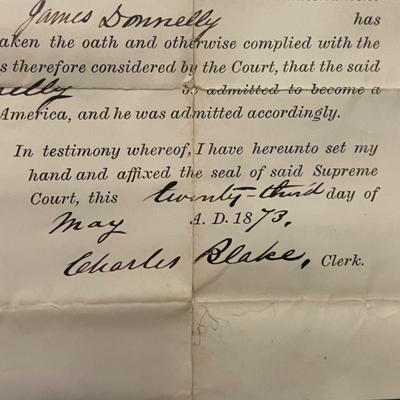 James Donnelly has
aken the oath and otherwise complied with the
s therefore considered by the Court, that the said
nelly admitted to become a
America, and he was admitted accordingly.
In testimony whereof, I have hereunto set my
hand and affixed the seal of said Supreme
Court, this twenty-third day of
May A. D. 1873.
Charles Blake, Clerk.